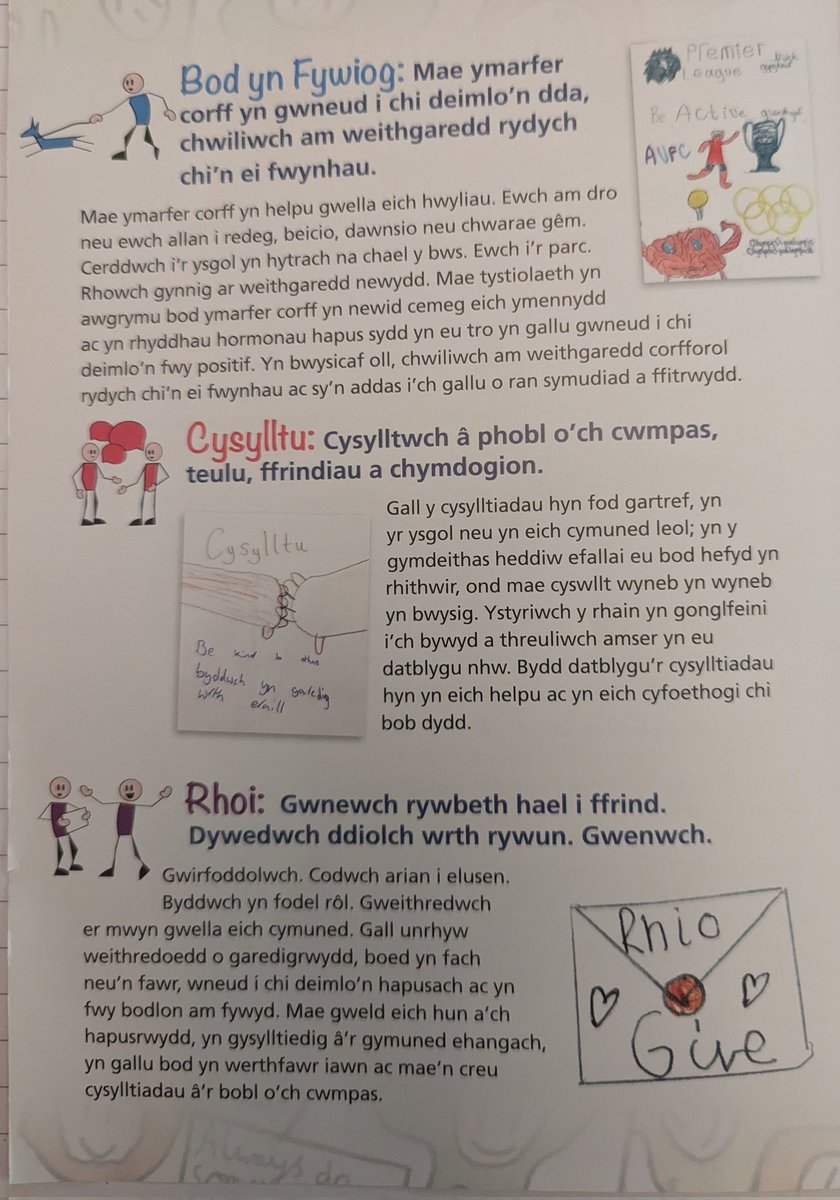 Bod yn Fywiog: Mae ymarfer
corff yn gwneud i chi deimlo'n dda,
chwiliwch am weithgaredd rydych
chi'n ei fwynhau.
Premier
League
Be Active
AVFC
Mae ymarfer corff yn helpu gwella eich hwyliau. Ewch am dro
neu ewch allan i redeg, beicio, dawnsio neu chwarae gêm.
Cerddwch i'r ysgol yn hytrach na chael y bws. Ewch i'r parc.
Rhowch gynnig ar weithgaredd newydd. Mae tystiolaeth yn
awgrymu bod ymarfer corff yn newid cemeg eich ymennydd
ac yn rhyddhau hormonau hapus sydd yn eu tro yn gallu gwneud i chi
deimlo'n fwy positif. Yn bwysicaf oll, chwiliwch am weithgaredd corfforol
rydych chi'n ei fwynhau ac sy'n addas i'ch gallu o ran symudiad a ffitrwydd.
Cysylltu: Cysylltwch â phobl o'ch cwmpas,
teulu, ffrindiau a chymdogion.
Cysylltu
Be kind to others
byddwch yn garedig
wrth eraill
Gall y cysylltiadau hyn fod gartref, yn
yr ysgol neu yn eich cymuned leol; yn y
gymdeithas heddiw efallai eu bod hefyd yn
rhithwir, ond mae cyswllt wyneb yn wyneb
yn bwysig. Ystyriwch y rhain yn gonglfeini
i'ch bywyd a threuliwch amser yn eu
datblygu nhw. Bydd datblygu'r cysylltiadau
hyn yn eich helpu ac yn eich cyfoethogi chi
bob dydd.
Rhoi: Gwnewch rywbeth hael i ffrind.
Dywedwch ddiolch wrth rywun. Gwenwch.
Gwirfoddolwch. Codwch arian i elusen.
Byddwch yn fodel rôl. Gweithredwch
er mwyn gwella eich cymuned. Gall unrhyw
weithredoedd o garedigrwydd, boed yn fach
neu'n fawr, wneud i chi deimlo'n hapusach ac yn
fwy bodlon am fywyd. Mae gweld eich hun a'ch
hapusrwydd, yn gysylltiedig â'r gymuned ehangach,
yn gallu bod yn werthfawr iawn ac mae'n creu
cysylltiadau â'r bobl o'ch cwmpas.
Rhio
Give
Always do